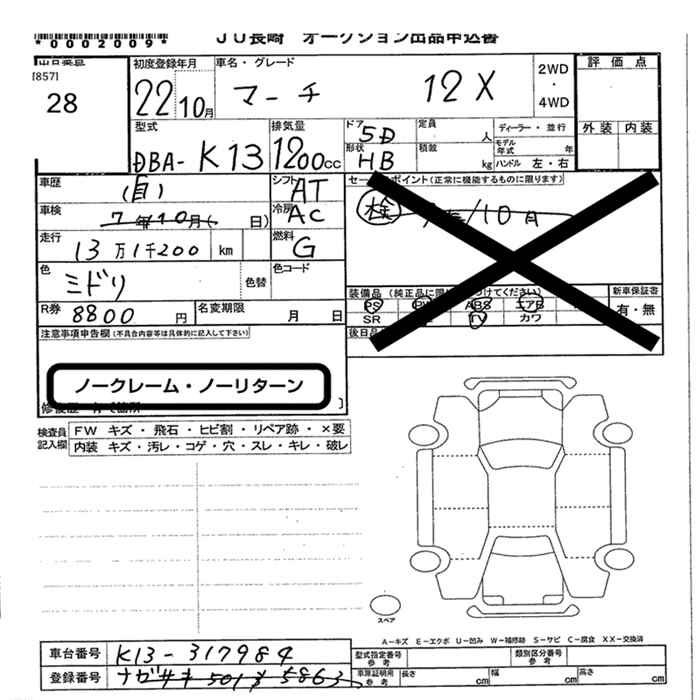 *0002009*
JU長崎 オークション出品申込書
出品番号
[857]
28
初度登録年月
22 10月
車名・グレード
マーチ 12X
2WD
・
4WD
評価点
外装 内装
型式
DBA-K13
排気量
1200cc
ドア
5D
形状
HB
定員 人
積載 kg
ディーラー・並行
モデル年式 年
ハンドル 左・右
車歴
(自)
シフト
AT
車検
7年10月( 日)
冷房
AC
走行
13万1千200 km
燃料
G
色
ミドリ
色替
色コード
R券
8800円
名変期限 月 日
セールスポイント(正常に機能するものに限ります)
検 /10月
装備品
PS PW ABS エアB
SR TV カワ
新車保証書
有・無
後日品
注意事項申告欄(不具合内容等は具体的に記入して下さい)
ノークレーム・ノーリターン
検査員記入欄
FW キズ・飛石・ヒビ割・リペア跡・×要
内装 キズ・汚レ・コゲ・穴・スレ・キレ・破レ
スペア
A-キズ E-エクボ U-凹み W-補修跡 S-サビ C-腐食 XX-交換済
車台番号 K13-317984
型式指定番号 参考
類別区分番号 参考
登録番号 ナガサキ 501 す 5863
車庫証明用 参考 長さ cm 幅 cm 高さ cm